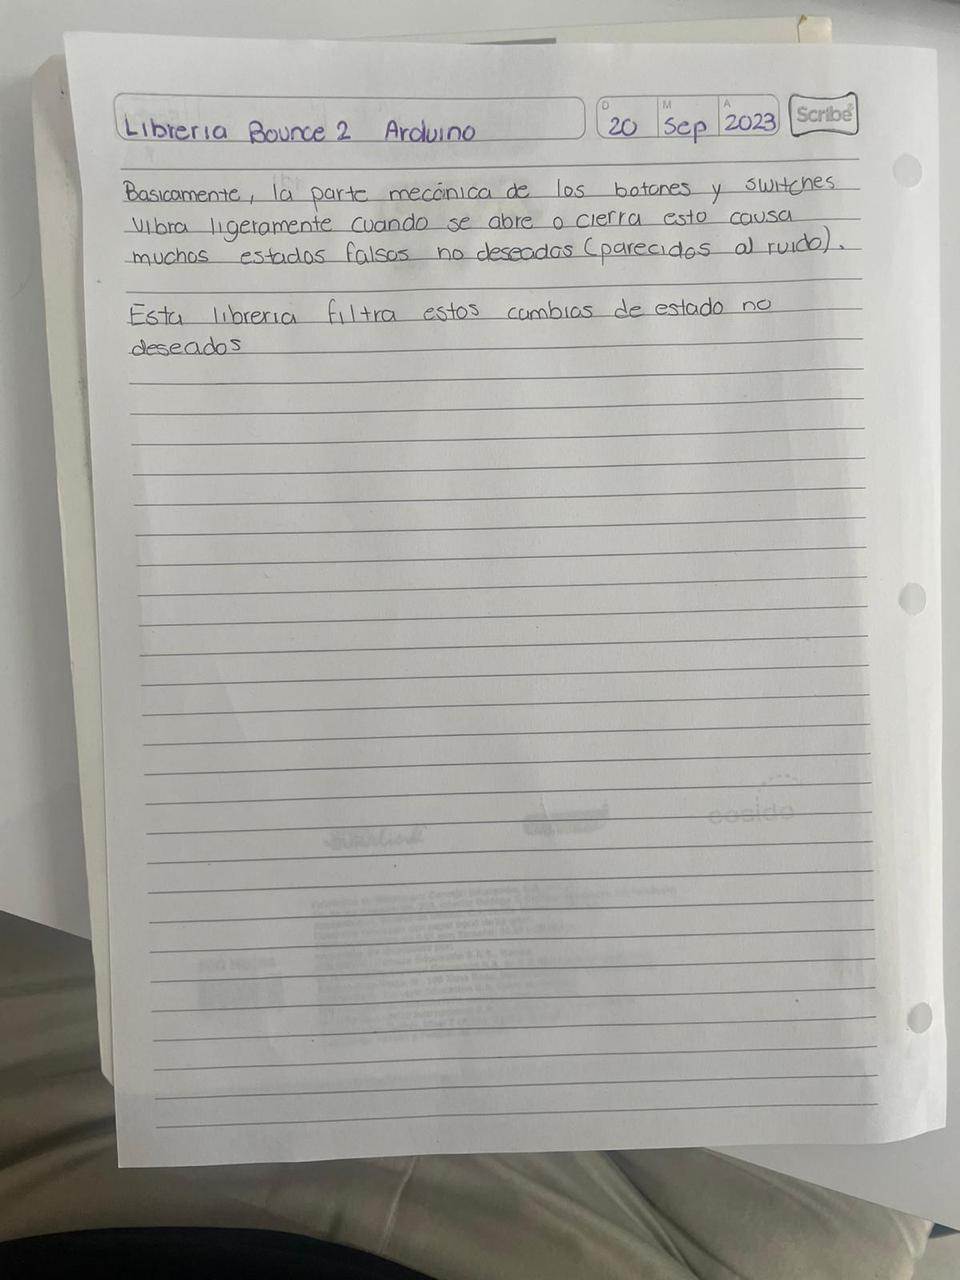 Libreria Bounce 2 Arduino
D M A
20 Sep 2023
Scribe
Basicamente, la parte mecánica de los botones y switches
vibra ligeramente cuando se abre o cierra esto causa
muchos estados falsos no deseados (parecidos al ruido).
Esta libreria filtra estos cambios de estado no
deseados